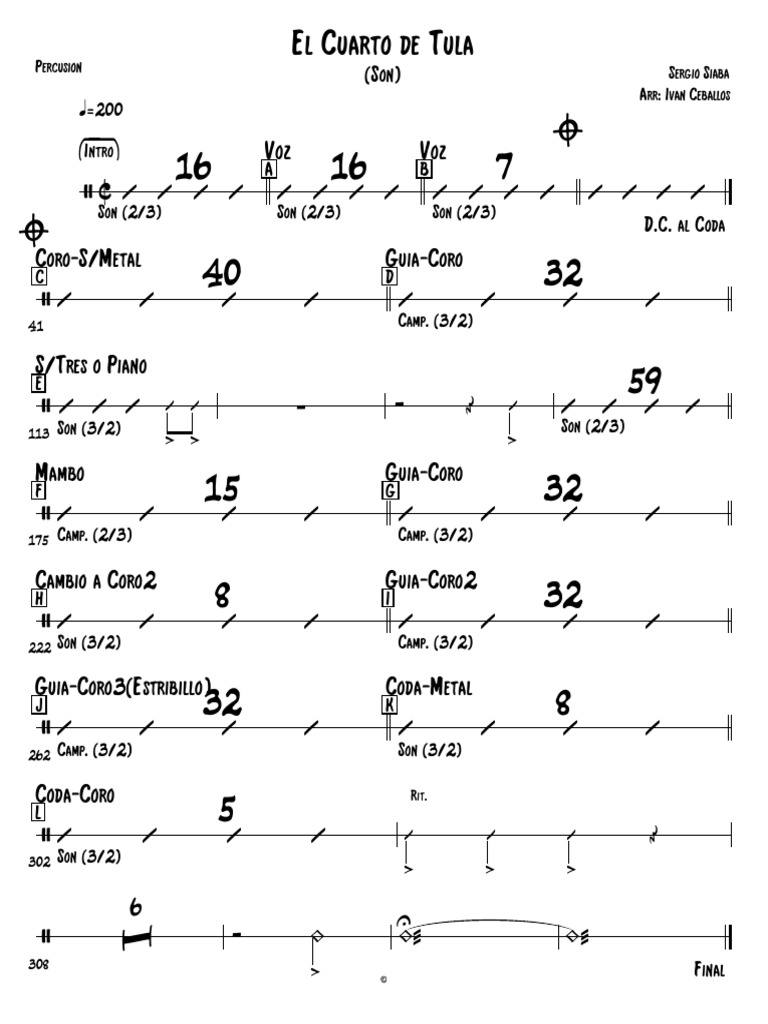 El Cuarto de Tula
Percusion
(Son)
Sergio Siaba
Arr: Ivan Ceballos
♩=200
(Intro) 16 Voz A 16 Voz B 7
Son (2/3) Son (2/3) Son (2/3)
D.C. al Coda
Coro-S/Metal Guia-Coro
C 40 D 32
41 Camp. (3/2)
S/Tres o Piano
E 59
113 Son (3/2) Son (2/3)
Mambo Guia-Coro
F 15 G 32
175 Camp. (2/3) Camp. (3/2)
Cambio a Coro2 Guia-Coro2
H 8 I 32
222 Son (3/2) Camp. (3/2)
Guia-Coro3(Estribillo) Coda-Metal
J 32 K 8
262 Camp. (3/2) Son (3/2)
Coda-Coro Rit.
L 5
302 Son (3/2)
6
308 Final
©